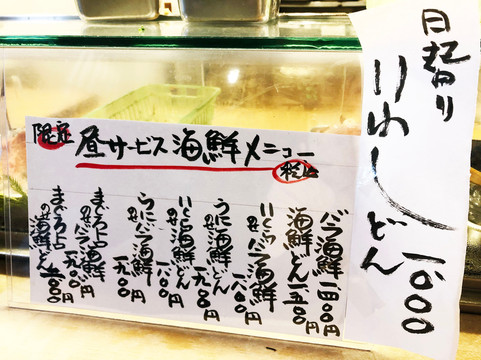 日替り
いわしどん
一、〇〇〇
限定
昼サービス海鮮メニュー
税込
バラ海鮮 一四〇〇円
海鮮どん 一五〇〇円
いくらのせバラ海鮮 一八〇〇円
うにのせ海鮮どん 一九〇〇円
いくらのせ海鮮どん 一八〇〇
うにのせバラ海鮮 一九〇〇
まぐろ上のせバラ海鮮 一九〇〇円
まぐろ上のせ海鮮どん